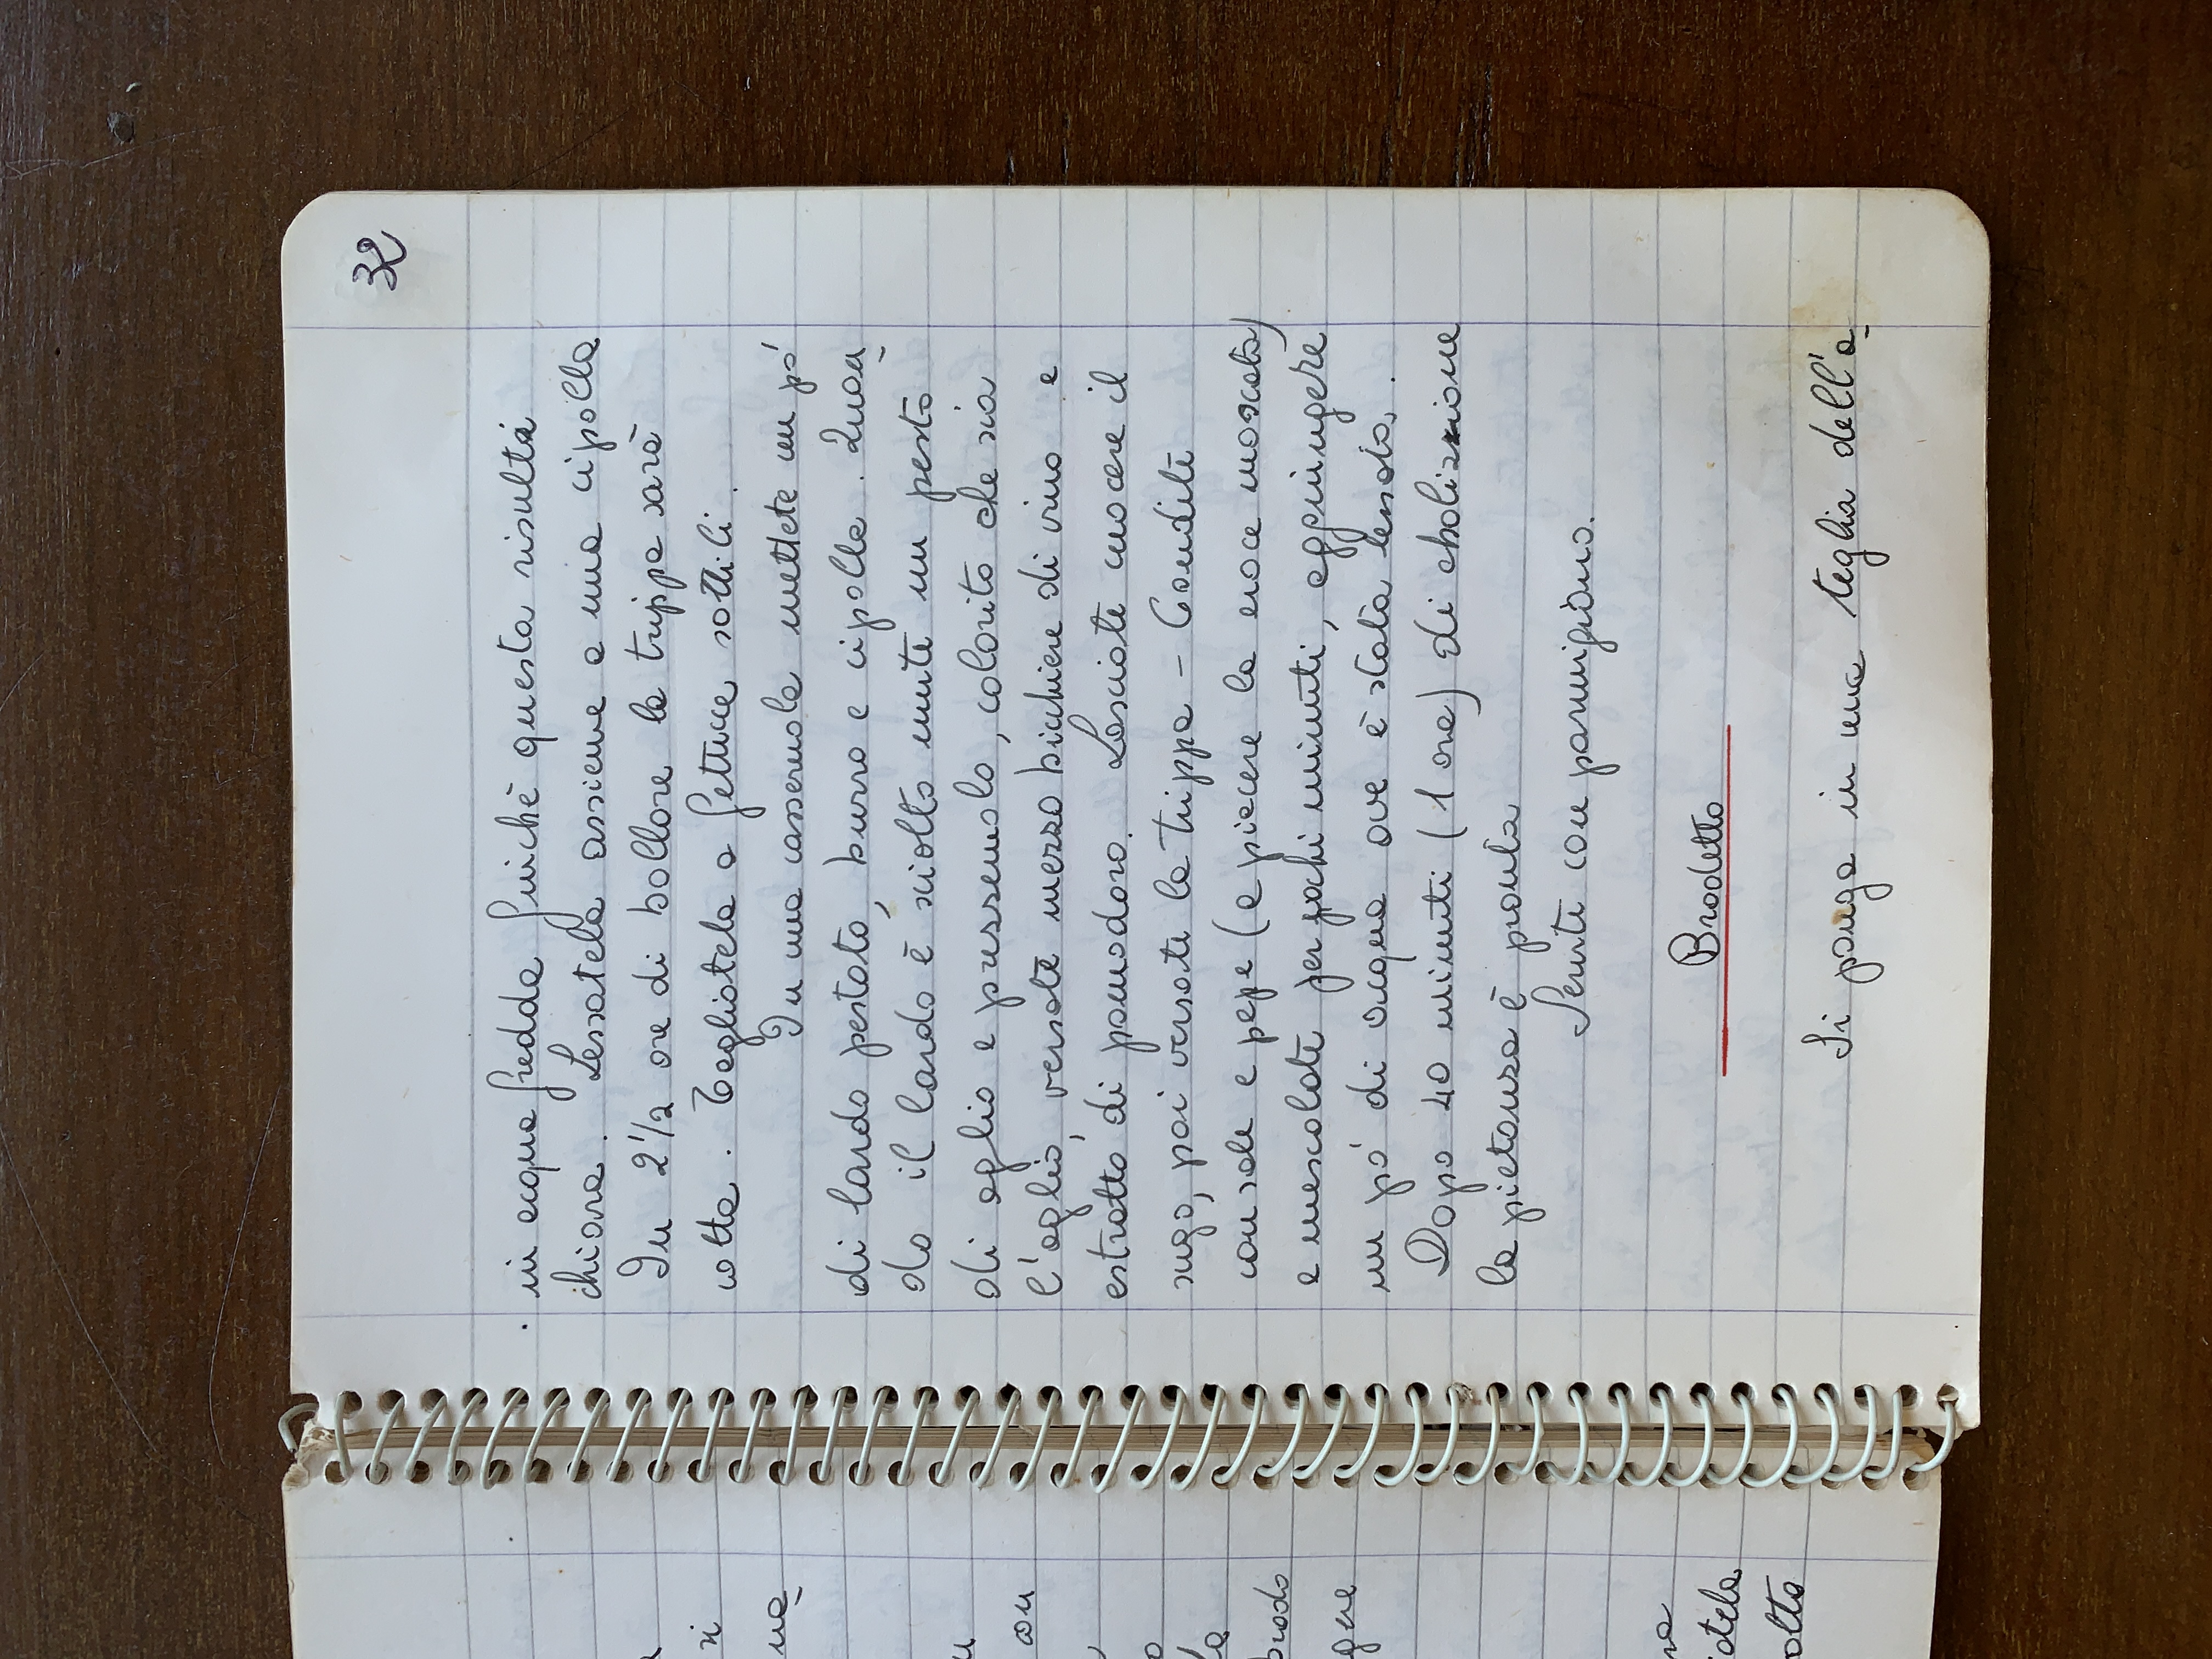 32
in acqua fredda finchè questa risulta
chiara. Lessatela assieme a una cipolla
In 2½ ore di bollore la trippa sarà
cotta. Tagliatela a fettucce sottili.
In una casseruola mettete un pó
di lardo pestato, burro e cipolla. Quan
do il lardo è sciolto unite un pesto
di aglio e prezzemolo, colorito che sia
l'aglio, versate mezzo bicchiere di vino e
estratto di pomodoro. Lasciate cuocere il
sugo, poi versate la trippa - Condite
con sale e pepe (a piacere la noce moscata)
e mescolate per pochi minuti, aggiungere
un pó di acqua ove è stata lessata.
Dopo 40 minuti (1 ora) di ebolizione
la pietanza è pronta
Servite con parmigiano.
Brodetto
Si ponga in una teglia dell'a_
si
na
con
la
brodo
gere
otela
olta